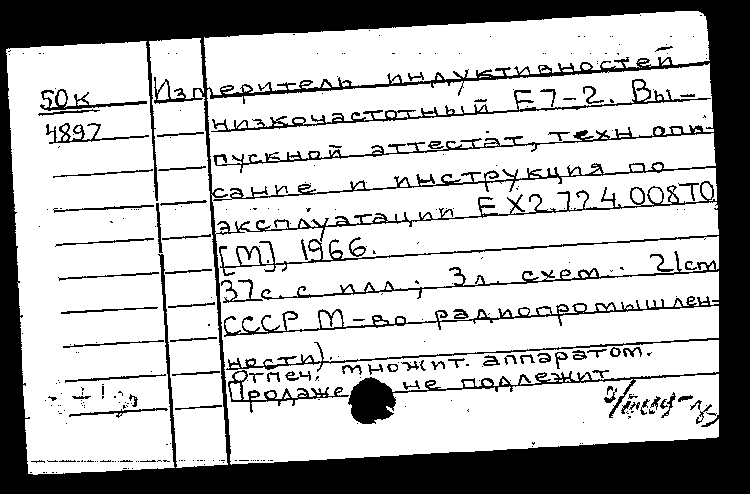 50к Измеритель индуктивностей
4897 низкочастотный Е7-2. Вы-
пускной аттестат, техн опи-
сание и инструкция по
эксплуатации ЕХ2.724.008ТО
[М.], 1966.
37с. с илл; 3л. схем. 21см
СССР М-во радиопромышлен-
ности).
Отпеч. множит. аппаратом.
Продаже не подлежит